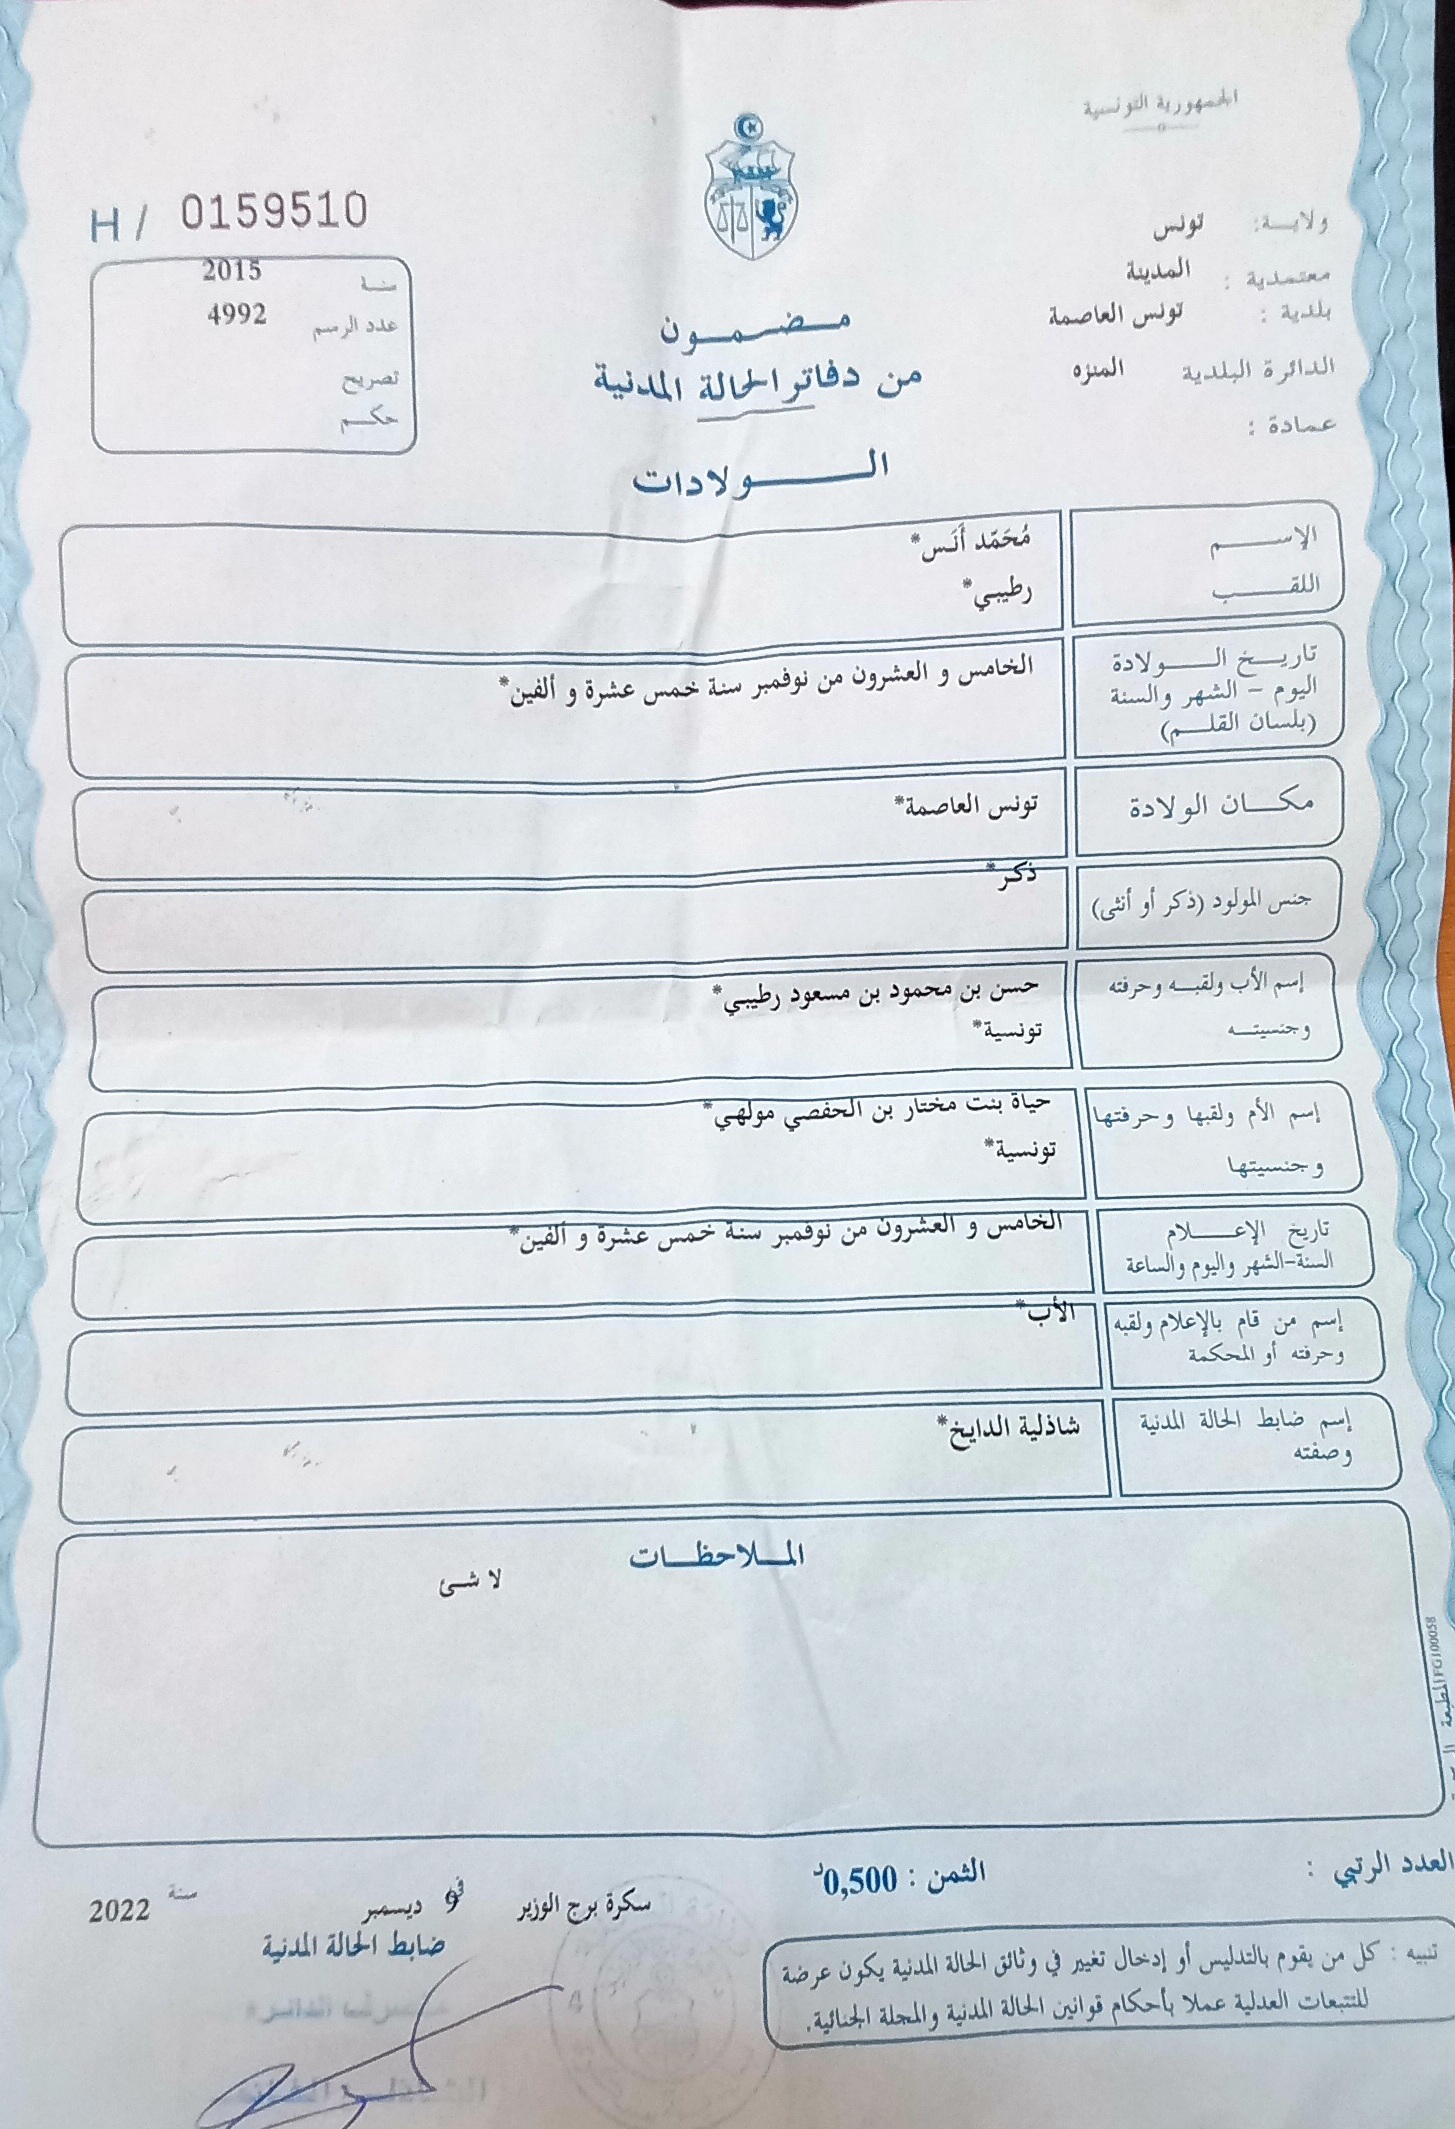 الجمهورية التونسية
H / 0159510
ولايـة: تونس
معتمدية : المدينة
بلدية : تونس العاصمة
الدائرة البلدية المنزه
عمادة :
سنة 2015
عدد الرسم 4992
تصريح
حكم
مضمون
من دفاتر الحالة المدنية
الولادات
الإسم مُحَمّد أَنَس*
اللقب رطيبي*
تاريخ الولادة
اليوم - الشهر والسنة
(بلسان القلم)
الخامس و العشرون من نوفمبر سنة خمس عشرة و ألفين*
مكان الولادة تونس العاصمة*
جنس المولود (ذكر أو أنثى) ذكر*
إسم الأب ولقبه وحرفته
وجنسيته
حسن بن محمود بن مسعود رطيبي*
تونسية*
إسم الأم ولقبها وحرفتها
وجنسيتها
حياة بنت مختار بن الحفصي مولهي*
تونسية*
تاريخ الإعلام
السنة-الشهر واليوم والساعة
الخامس و العشرون من نوفمبر سنة خمس عشرة و ألفين*
إسم من قام بالإعلام ولقبه
وحرفته أو المحكمة
الأب*
إسم ضابط الحالة المدنية
وصفته
شاذلية الدايخ*
الملاحظات
لا شئ
المطبعة FG100058
العدد الرتبي :
الثمن : 0,500د
سكرة برج الوزير في 9 ديسمبر سنة 2022
ضابط الحالة المدنية
تنبيه : كل من يقوم بالتدليس أو إدخال تغيير في وثائق الحالة المدنية يكون عرضة
للتتبعات العدلية عملا بأحكام قوانين الحالة المدنية والمجلة الجنائية.